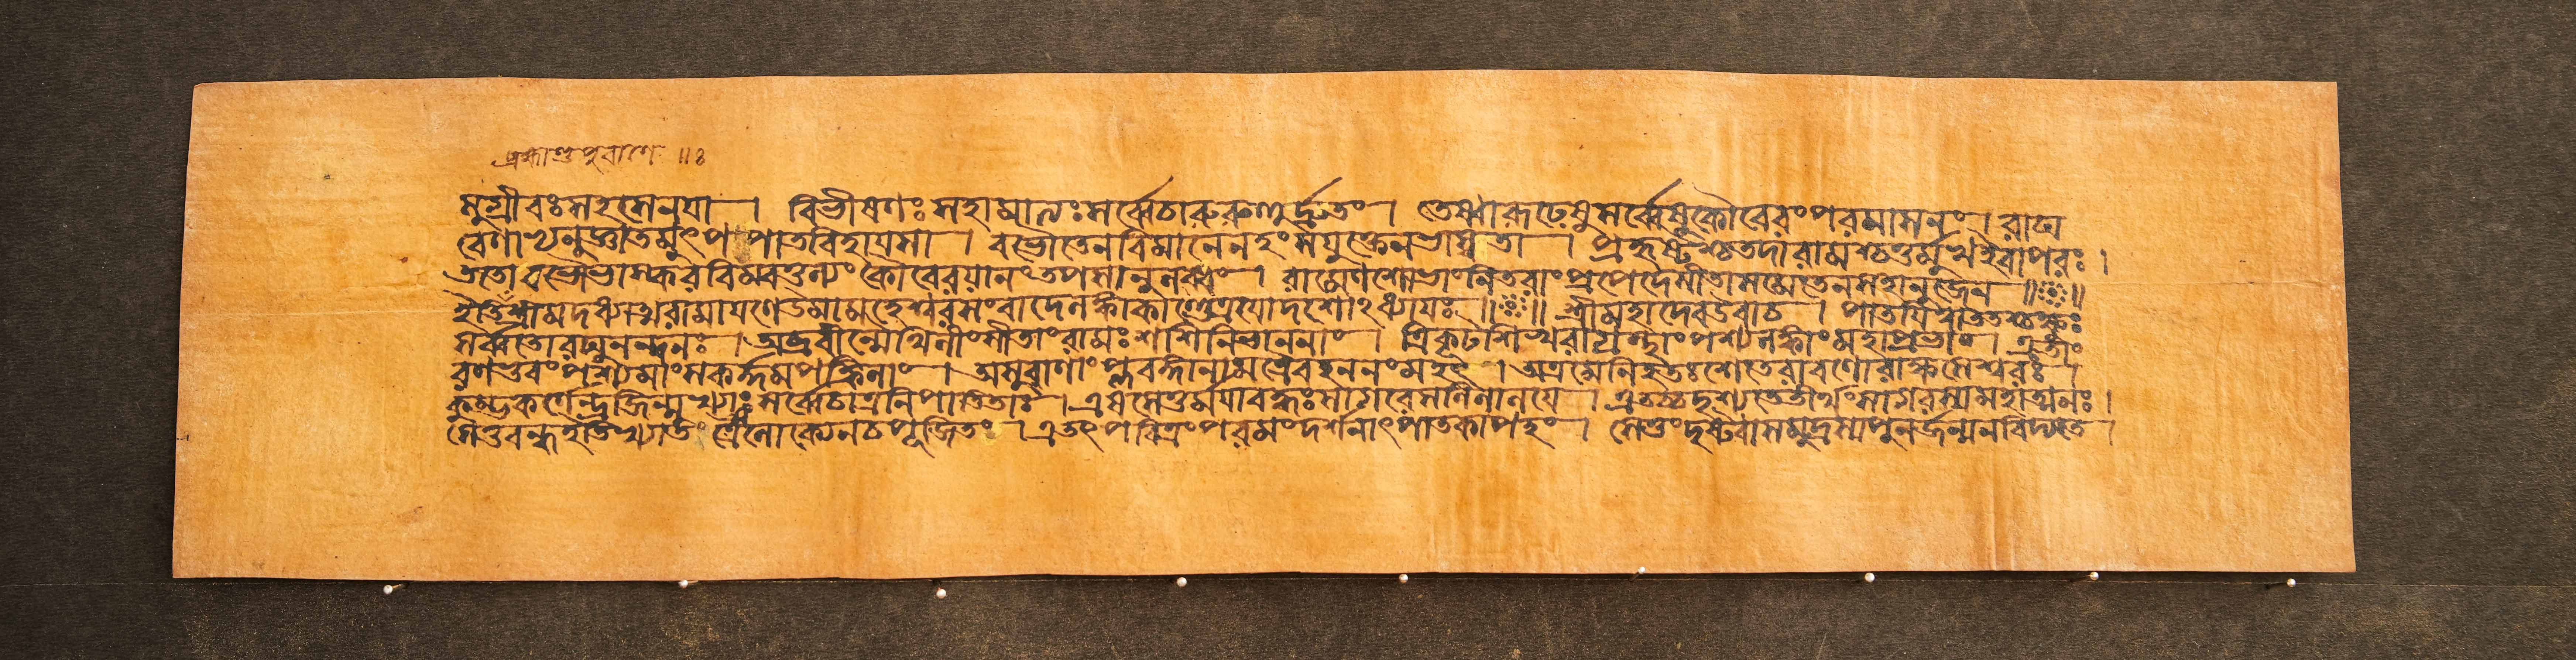 ব্রহ্মাণ্ডপুরাণে ॥ঃ
সুগ্রীবঃসহসেনয়া । বিভীষণঃসহামাত্যঃসর্ব্বেচারুরুহুর্দ্রুতং । তেষ্বারূঢেষুসর্ব্বেষুকৌবেরংপরমাসনং । রাঘ
বেণাভ্যনুজ্ঞাতমুৎপপাতবিহায়সা । বভৌতেনবিমানেনহংসযুক্তেনভাস্বতা । প্রহৃষ্টশ্চতদারামশ্চতুর্ম্মুখইবাপরঃ ।
ততোবভৌভাস্করবিম্বতুল্যংকৌবেরয়ানংতপসানুলব্ধং । রামেণশোভাংনিতরাংপ্রপেদেসীতাসমেতেনসহানুজেন ॥
ইতিশ্রীমদধ্যাত্মরামায়ণেউমামহেশ্বরসংবাদেলঙ্কাকাণ্ডেত্রয়োদশোঽধ্যায়ঃ ॥ ॥ শ্রীমহাদেবউবাচ । পাতয়িত্বাততশ্চক্ষুঃ
সর্ব্বতোরঘুনন্দনঃ । অব্রবীন্মৈথিলীংসীতাংরামঃশশিনিভাননাং । ত্রিকূটশিখরাগ্রস্থাংপশ্যলঙ্কাংমহাপ্রভাং । এতাং
রণভুবংপশ্যমাংসকর্দ্দমপঙ্কিলাং । অসুরাণাংপ্লবঙ্গানামত্রবৈহননংমহৎ । অত্রমেনিহতঃশেতেরাবণোরাক্ষসেশ্বরঃ ।
কুম্ভকর্ণেন্দ্রজিন্মুখ্যাঃসর্ব্বেচাত্রনিপাতিতাঃ । এষসেতুর্ম্ময়াবদ্ধঃসাগরেসলিলাশয়ে । এতচ্চদৃশ্যতেতীর্থংসাগরস্যমহাত্মনঃ ।
সেতুবন্ধইতিখ্যাতংত্রৈলোক্যেনচপূজিতং । এতৎপবিত্রংপরমংদর্শনাৎপাতকাপহং । সেতুংদৃষ্ট্বাসমুদ্রস্যপুনর্জ্জন্মনবিদ্যতে ।